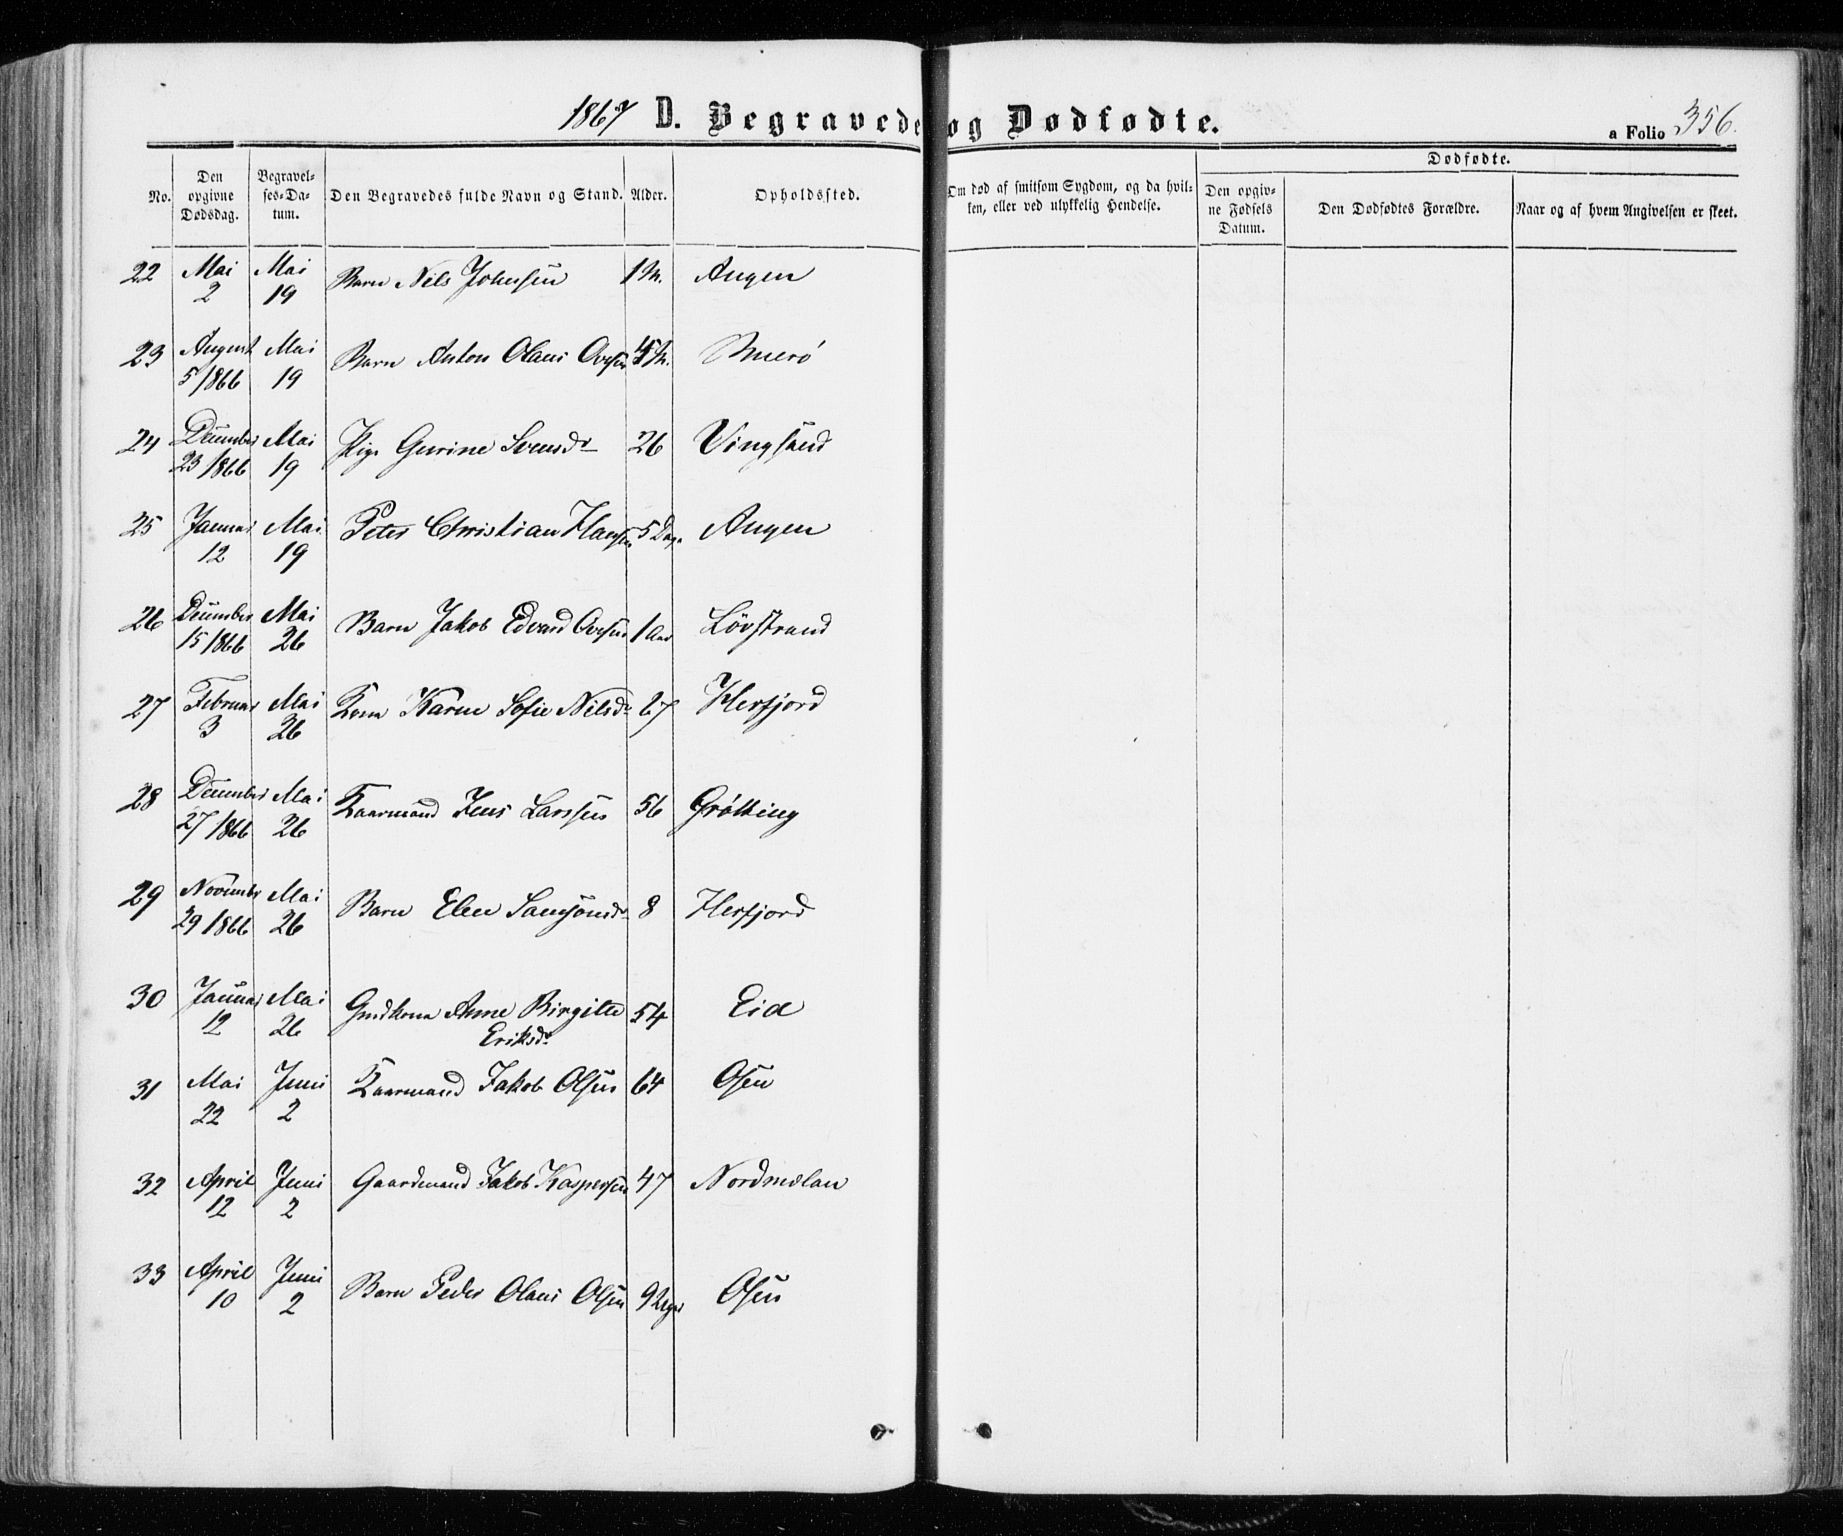 1867 D. Begravede og Dødfødte. a Folio 356.
No. Den opgivne Dødsdag. Begravelses-Datum. Den Begravedes fulde Navn og Stand. Alder. Opholdssted. Om død af smitsom Sygdom, og da hvilken, eller ved ulykkelig Hendelse. Dødfødte. Den opgivne Fødsels Datum. Den Dødfødtes Forældre. Naar og af hvem Angivelsen er skeet.
22 Mai 2 Mai 19 Barn Nils Johnsen 1 M. Angen
23 August 5 1866 Mai 19 Barn Anton Olaus Ovesen M. 
24 December 23 1866 Mai 19 Pige Gurine Svensdr 26 Vingsand
25 Januar 12 Mai 19 Peter Christian Hansen 5 Dage Angen
26 December 15 1866 Mai 26 Barn Jakob Edvard Ovesen 1 Aar Løvstrand
27 Februar 3 Mai 26 Kone Karen Sofie Nilsdr 27 Herfjord
28 December 27 1866 Mai 26 Kaarmand Jens Larssen 56 Grøtting
29 November 29 1866 Mai 26 Barn Elen Samsonsdr 8 Herfjord
30 Januar 12 Mai 26 Gmdkone Anne Birgitte Eriksdr 54 Eid
31 Mai 22 Juni 2 Kaarmand Jakob Olsen 64 Osen
32 April 12 Juni 2 Gaardmand Jakob Kaspersen 47 Nordmelan
33 April 10 Juni 2 Barn Peder Olaus Olsen 9 Uger Osen